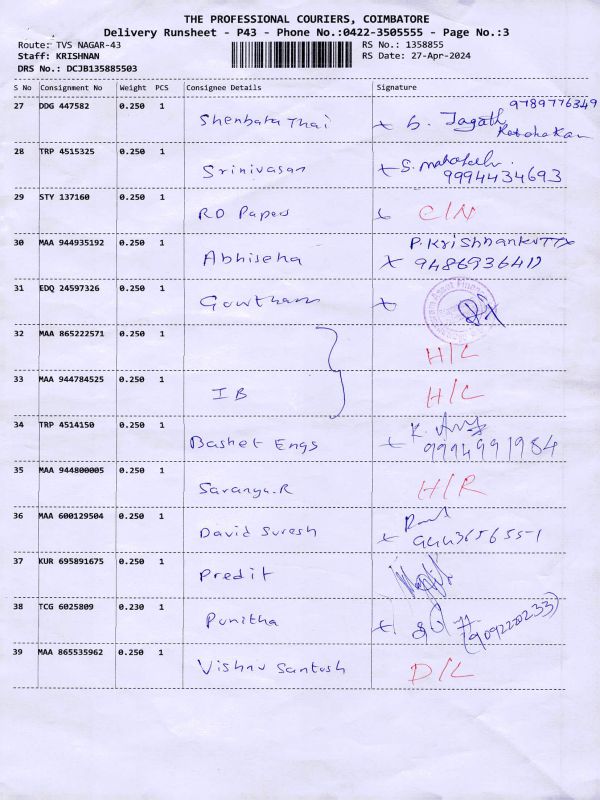 THE PROFESSIONAL COURIERS, COIMBATORE
Delivery Runsheet - P43 - Phone No.:0422-3505555 - Page No.:3
Route: TVS NAGAR-43 RS No.: 1358855
Staff: KRISHNAN RS Date: 27-Apr-2024
DRS No.: DCJB135885503
S No Consignment No Weight PCS Consignee Details Signature
27 DDG 447582 0.250 1 9789776349
Shenbaga Thai x b. Jagath
28 TRP 4515325 0.250 1
Srinivasan x S.
9994434693
29 STY 137160 0.250 1
RD Papers x C/N
30 MAA 944935192 0.250 1
Abhiseha x 9486936412
31 EDQ 24597326 0.250 1
Gowtham x
32 MAA 865222571 0.250 1
H/L
33 MAA 944784525 0.250 1
IB H/L
34 TRP 4514150 0.250 1
Bashet Engs x 9994991984
35 MAA 944800005 0.250 1
Saranya.R H/R
36 MAA 600129504 0.250 1
David Suresh x 9443656551
37 KUR 695891675 0.250 1
Predit
38 TCG 6025809 0.230 1
Punitha x (9092220233)
39 MAA 865535962 0.250 1
Vishnu Santosh D/L